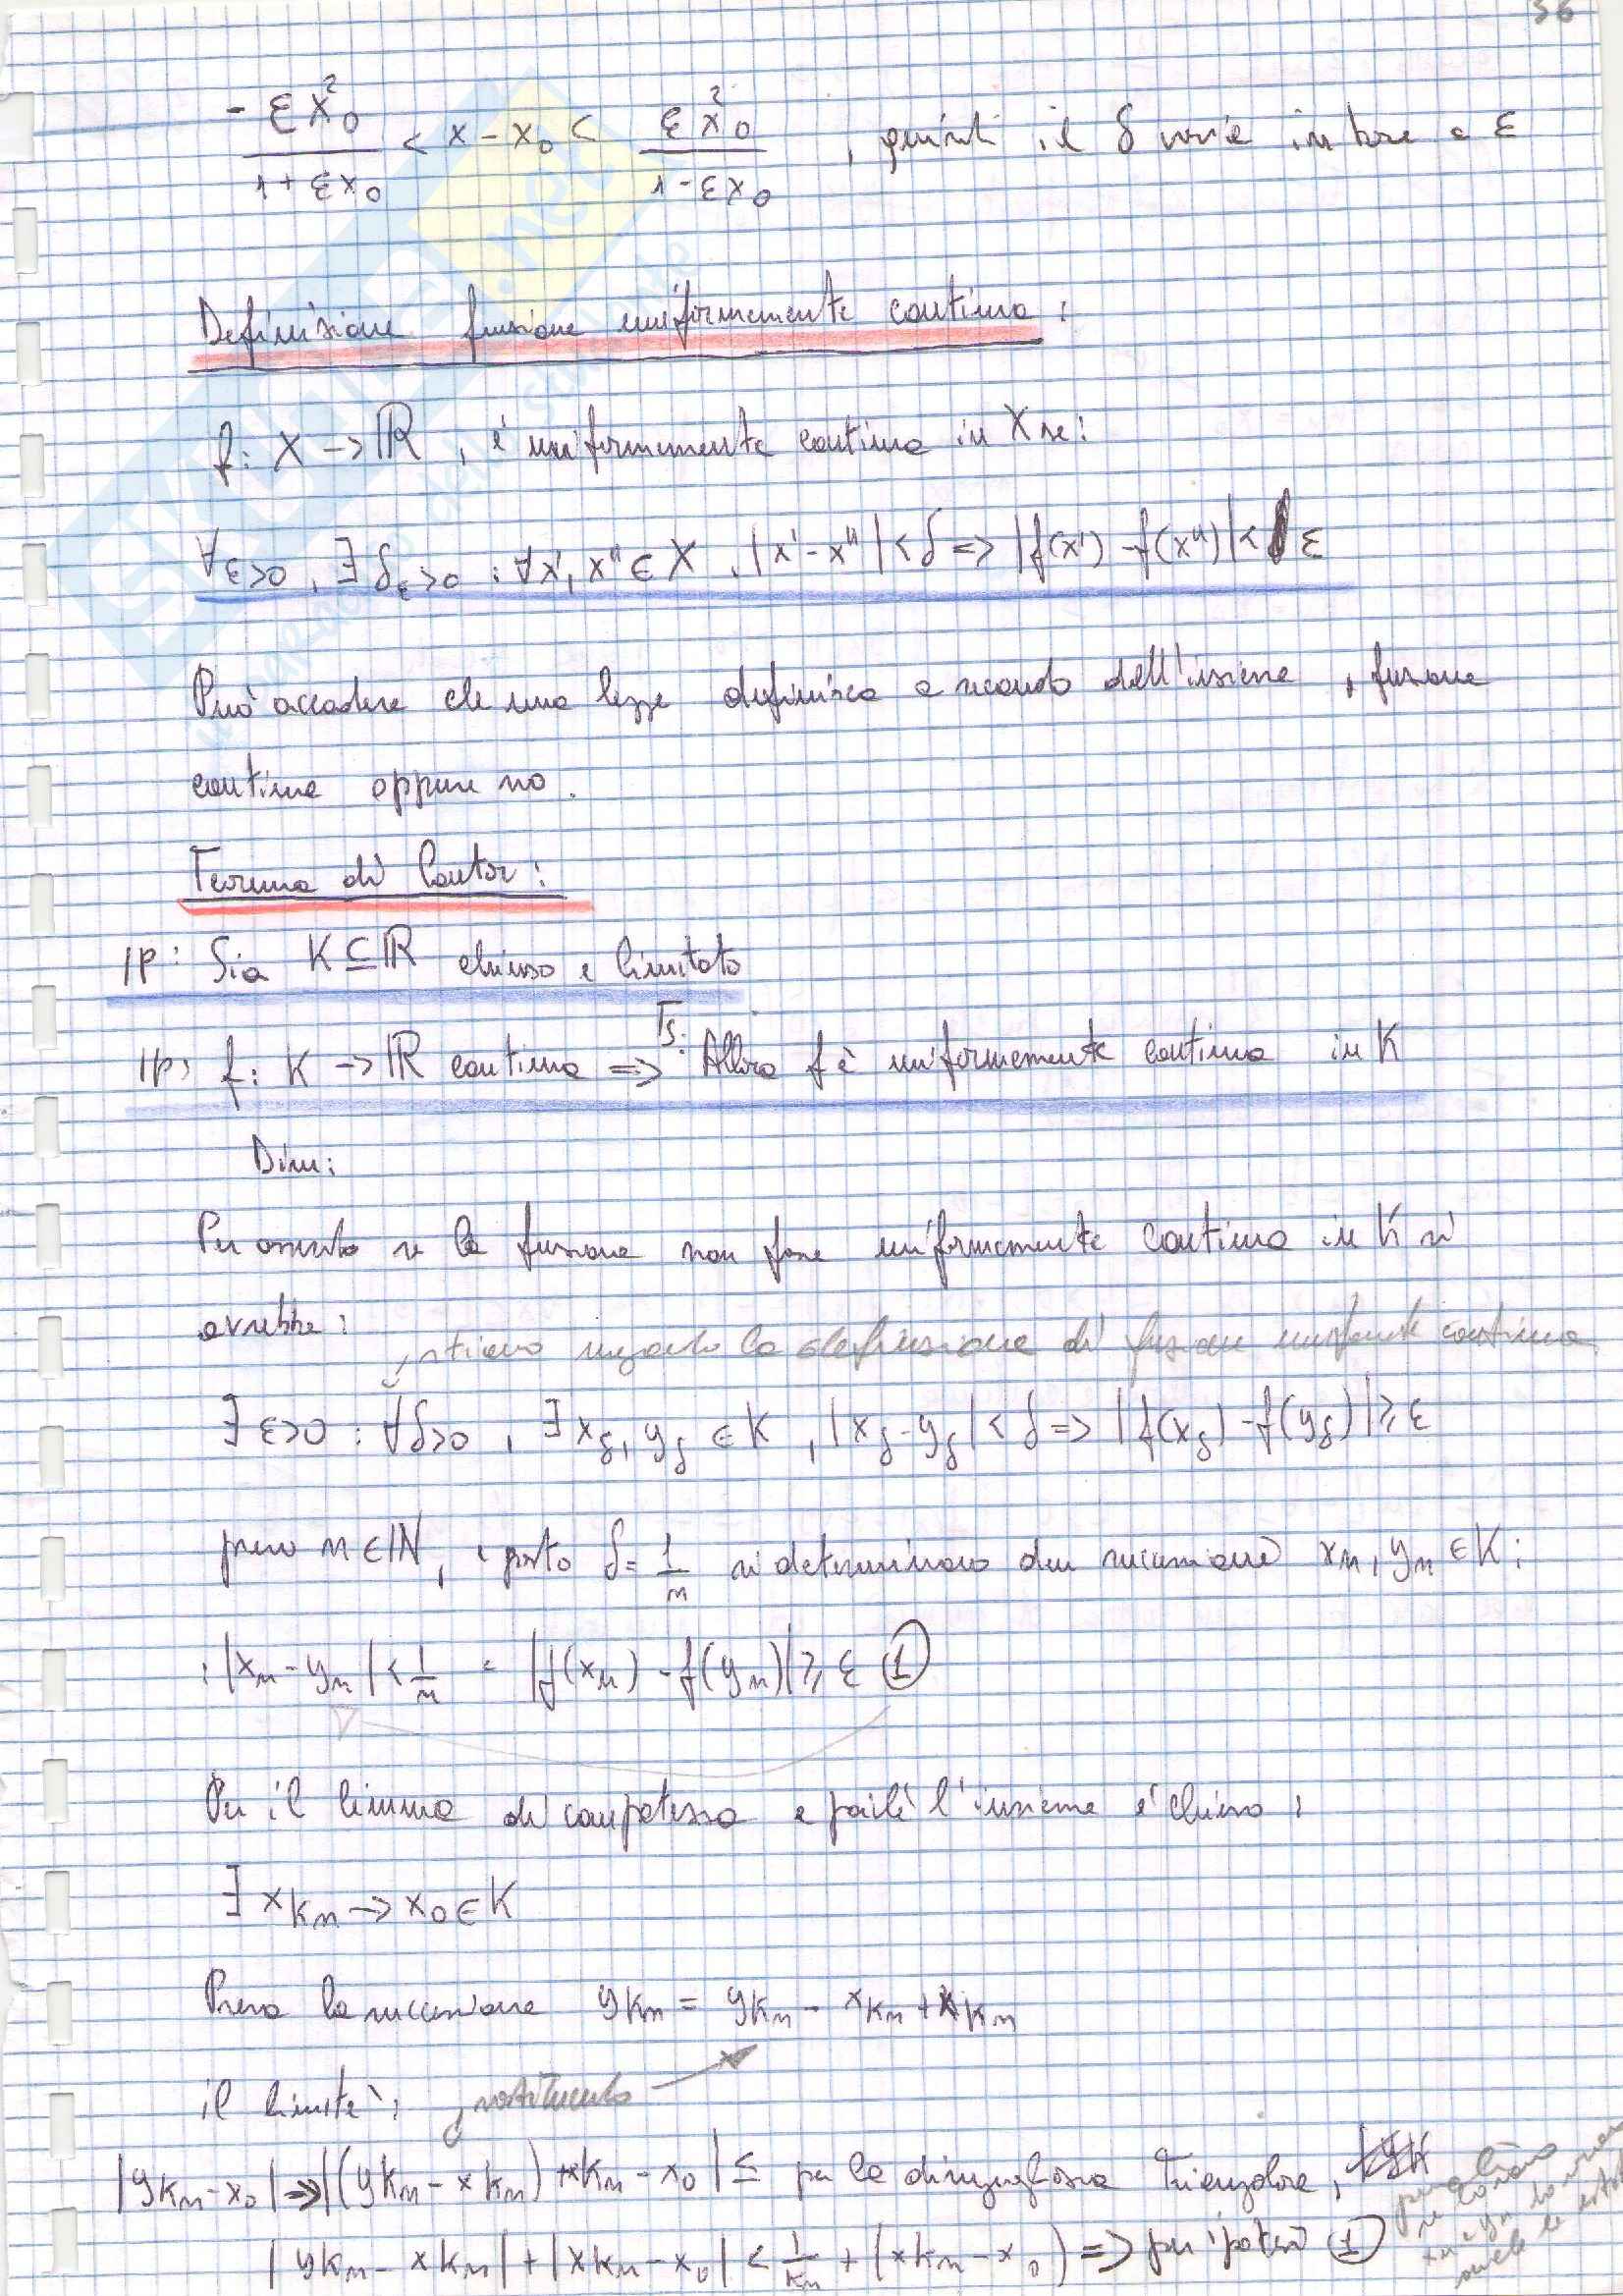 36
-εx²₀/1+εx₀ < x-x₀ < εx²₀/1-εx₀ , quindi il δ varia in base a ε
Definizione funzione uniformemente continua:
f: X → ℝ , è uniformemente continua in X se:
∀ε>0 , ∃ δε>0 : ∀x', x'' ∈ X , |x'-x''| < δ => |f(x') - f(x'')| < ε
Può accadere che una legge definisca a secondo dell'insieme , funzione
continua oppure no.
Teorema di Cantor:
IP: Sia K ⊆ ℝ chiuso e limitato
IP: f: K → ℝ continua => Ts: Allora f è uniformemente continua in K
Dim:
Per assurdo se la funzione non fosse uniformemente continua in K si
avrebbe:
, stiamo negando la definizione di funzione uniformemente continua
∃ ε>0 : ∀δ>0 , ∃ xδ, yδ ∈ K , |xδ-yδ| < δ => |f(xδ) - f(yδ)| ≥ ε
preso n ∈ ℕ, e posto δ = 1/n si determinano due successioni xn, yn ∈ K :
: |xn - yn| < 1/n e |f(xn) - f(yn)| ≥ ε ①
Per il lemma di compattezza e poiché l'insieme è chiuso :
∃ xkn → x₀ ∈ K
Presa la successione ykn = ykn - xkn + xkn
il limite: , sostituendo
|ykn - x₀| => |(ykn - xkn) + xkn - x₀| ≤ per la disuguaglianza triangolare ,
|ykn - xkn| + |xkn - x₀| < 1/kn + (xkn - x₀) => per ipotesi ①